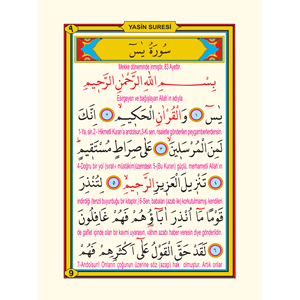 ٩ YASİN SURESİ
سورة يس
Mekke döneminde inmiştir. 83 Ayettir.
بِسْمِ اللّٰهِ الرَّحْمٰنِ الرَّحِيمِ
Esirgeyen ve bağışlayan Allah'ın adıyla
يٰسٓ ١ وَالْقُرْاٰنِ الْحَكِيمِ ٢ اِنَّكَ
1-Ya, sin. 2- Hikmetli Kuran'a andolsun, 3-Ki sen, risaletle gönderilen peygamberlerdensin.
لَمِنَ الْمُرْسَلِينَ ٣ عَلٰى صِرَاطٍ مُسْتَقِيمٍ
4-Doğru bir yol üzerindesin 5-(Bu Kuran) güçlü, merhametli Allah'ın
٤ تَنْزِيلَ الْعَزِيزِ الرَّحِيمِ ٥ لِتُنْذِرَ
indirdiği (tenzil buyurduğu) bir kitaptır. 6-Sen, babaları (azab ile) korkutulmamış, kendileri
قَوْمًا مَٓا اُنْذِرَ اٰبَٓاؤُ۬هُمْ فَهُمْ غَافِلُونَ
de gaflet içinde olan bir kavmi uyarasın, vâhim azabı haber veresin diye gönderildin.
٦ لَقَدْ حَقَّ الْقَوْلُ عَلٰٓى اَكْثَرِهِمْ فَهُمْ
7-Andolsun! Onların çoğunun üzerine söz (azap) hak olmuştur. Artık onlar
9